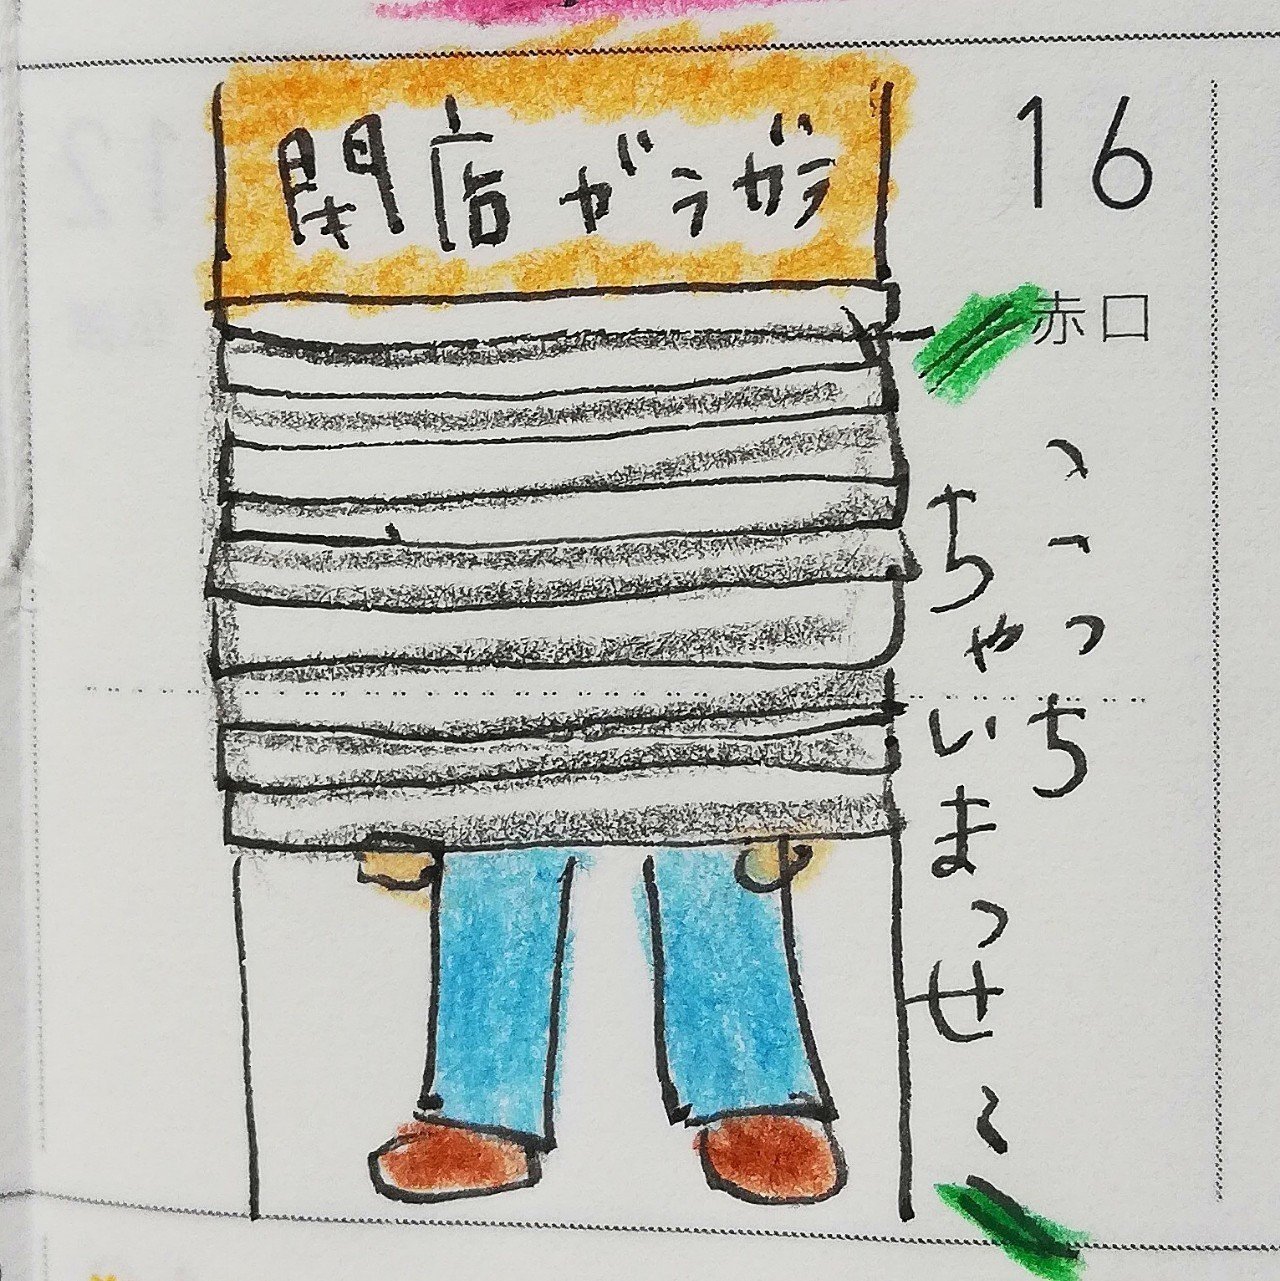 16
赤口
閉店ガラガラ
っち
ちゃいまっせ〜